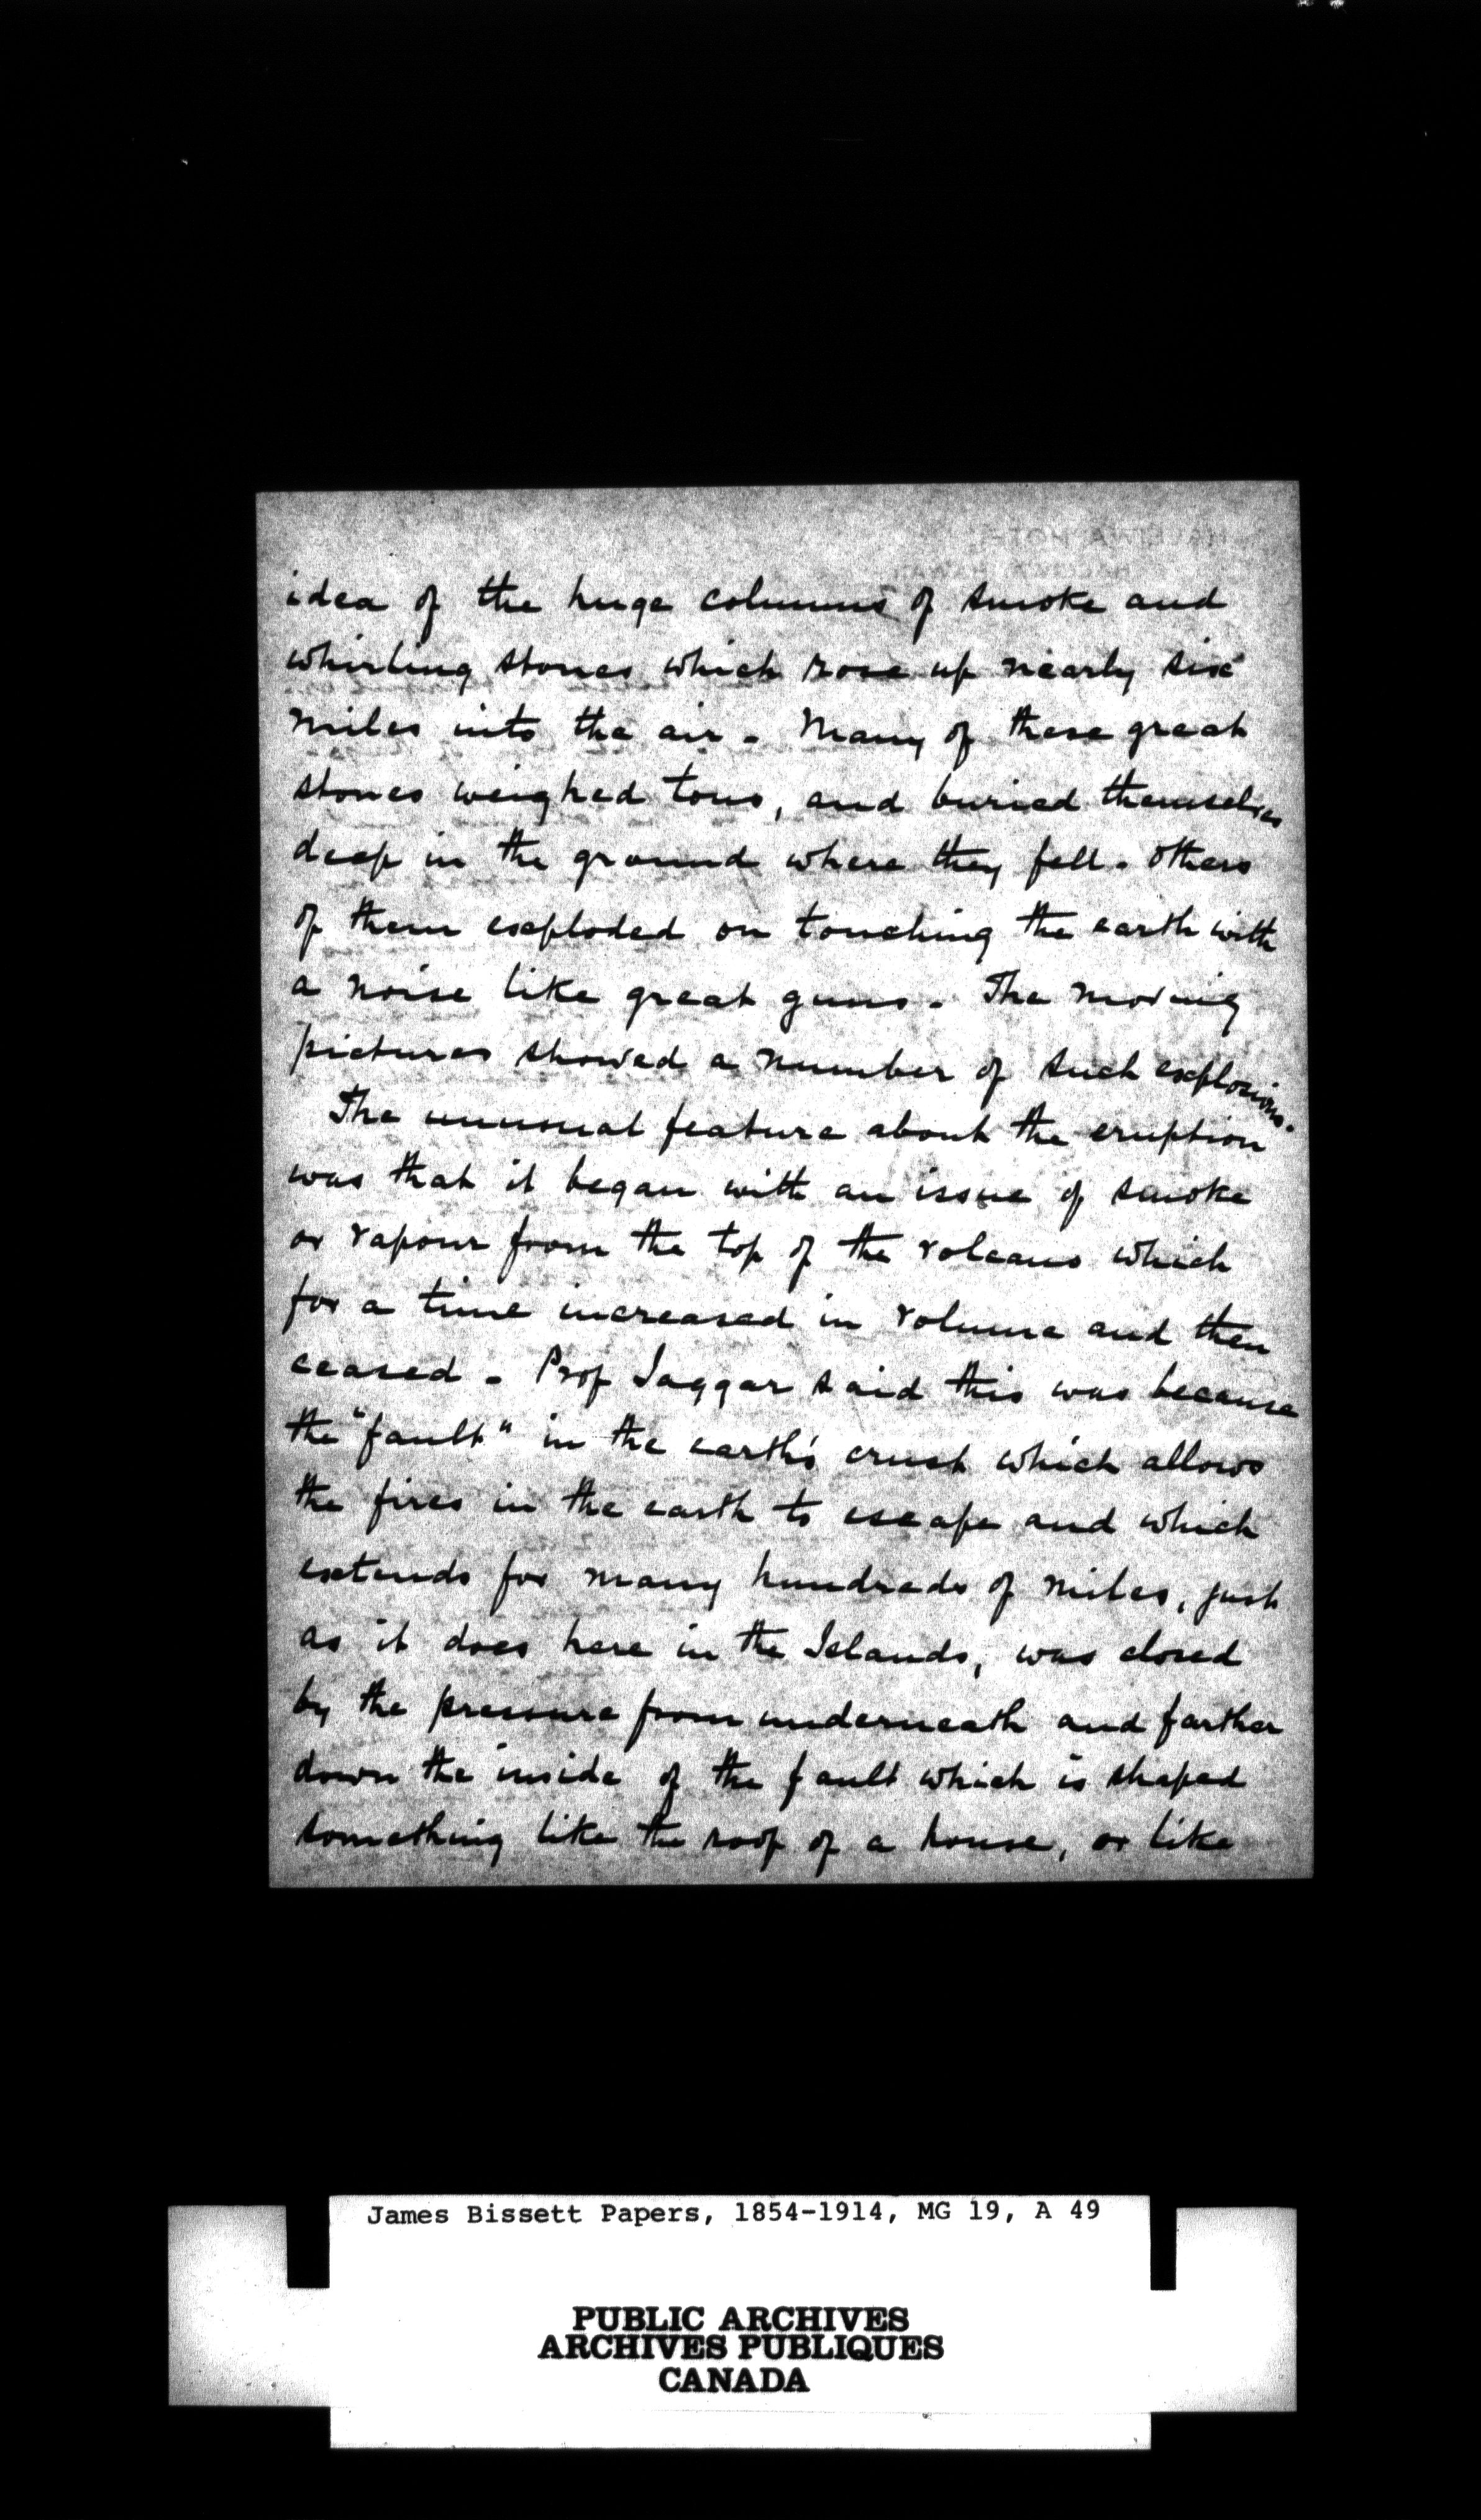 idea of the huge columns of smoke and
whirling stones which rose up nearly six
miles into the air. Many of these great
stones weighed tons, and buried themselves
deep in the ground where they fell. Others
of them exploded on touching the earth with
a noise like great guns. The moving
pictures showed a number of such explosions.
The unusual feature about the eruption
was that it began with an issue of smoke
or vapour from the top of the volcano which
for a time increased in volume and then
ceased. Prof Jaggar said this was because
the "fault" in the earth's crust which allows
the fires in the earth to escape and which
extends for many hundreds of miles, just
as it does here in the Islands, was closed
by the pressure from underneath and farther
down the inside of the fault which is shaped
something like the roof of a house, or like
James Bissett Papers, 1854-1914, MG 19, A 49
PUBLIC ARCHIVES
ARCHIVES PUBLIQUES
CANADA